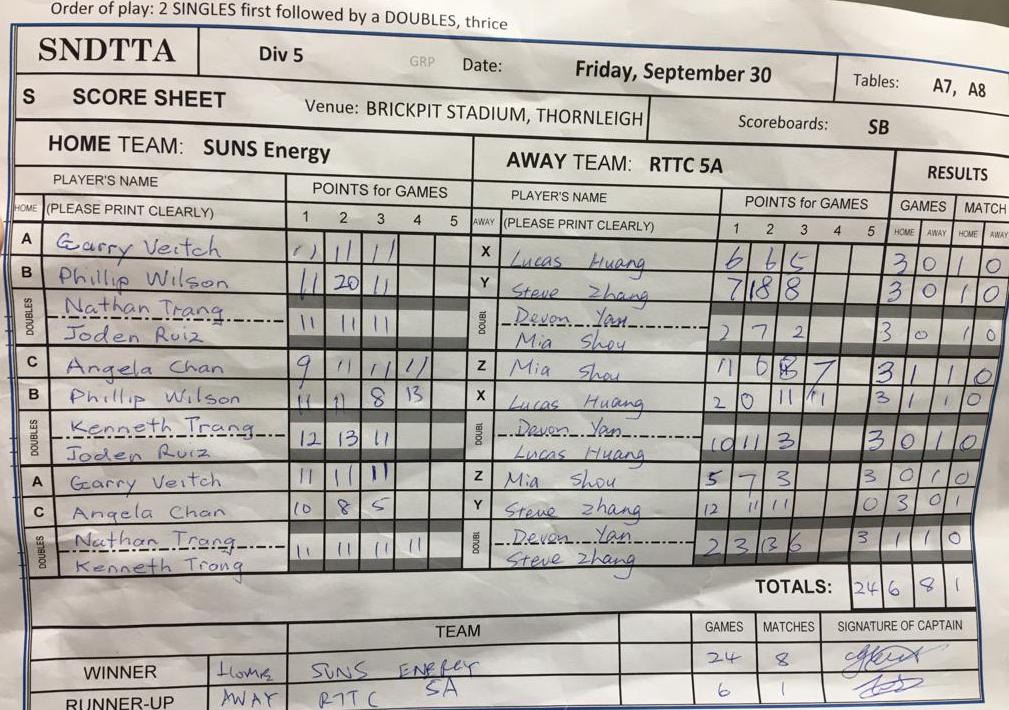 Order of play: 2 SINGLES first followed by a DOUBLES, thrice
SNDTTA Div 5 GRP Date: Friday, September 30 Tables: A7, A8
S SCORE SHEET Venue: BRICKPIT STADIUM, THORNLEIGH Scoreboards: SB
HOME TEAM: SUNS Energy AWAY TEAM: RTTC 5A RESULTS
PLAYER'S NAME POINTS for GAMES PLAYER'S NAME POINTS for GAMES GAMES MATCH
HOME (PLEASE PRINT CLEARLY) 1 2 3 4 5 AWAY (PLEASE PRINT CLEARLY) 1 2 3 4 5 HOME AWAY HOME AWAY
A Garry Veitch 11 11 11 X Lucas Huang 6 6 5 3 0 1 0
B Phillip Wilson 11 20 11 Y Steve Zhang 7 18 8 3 0 1 0
DOUBLES Nathan Trang Joden Ruiz 11 11 11 DOUBL Devon Yan Mia Shou 2 7 2 3 0 1 0
C Angela Chan 9 11 11 11 Z Mia Shou 11 6 8 7 3 1 1 0
B Phillip Wilson 11 11 8 13 X Lucas Huang 2 0 11 11 3 1 1 0
DOUBLES Kenneth Trang Joden Ruiz 12 13 11 DOUBL Devon Yan Lucas Huang 10 11 3 3 0 1 0
A Garry Veitch 11 11 11 Z Mia Shou 5 7 3 3 0 1 0
C Angela Chan 10 8 5 Y Steve Zhang 12 11 11 0 3 0 1
DOUBLES Nathan Trang Kenneth Trang 11 11 11 11 DOUBL Devon Yan Steve Zhang 2 3 13 6 3 1 1 0
TOTALS: 24 6 8 1
TEAM GAMES MATCHES SIGNATURE OF CAPTAIN
WINNER Home SUNS ENERGY 24 8
RUNNER-UP AWAY RTTC 5A 6 1